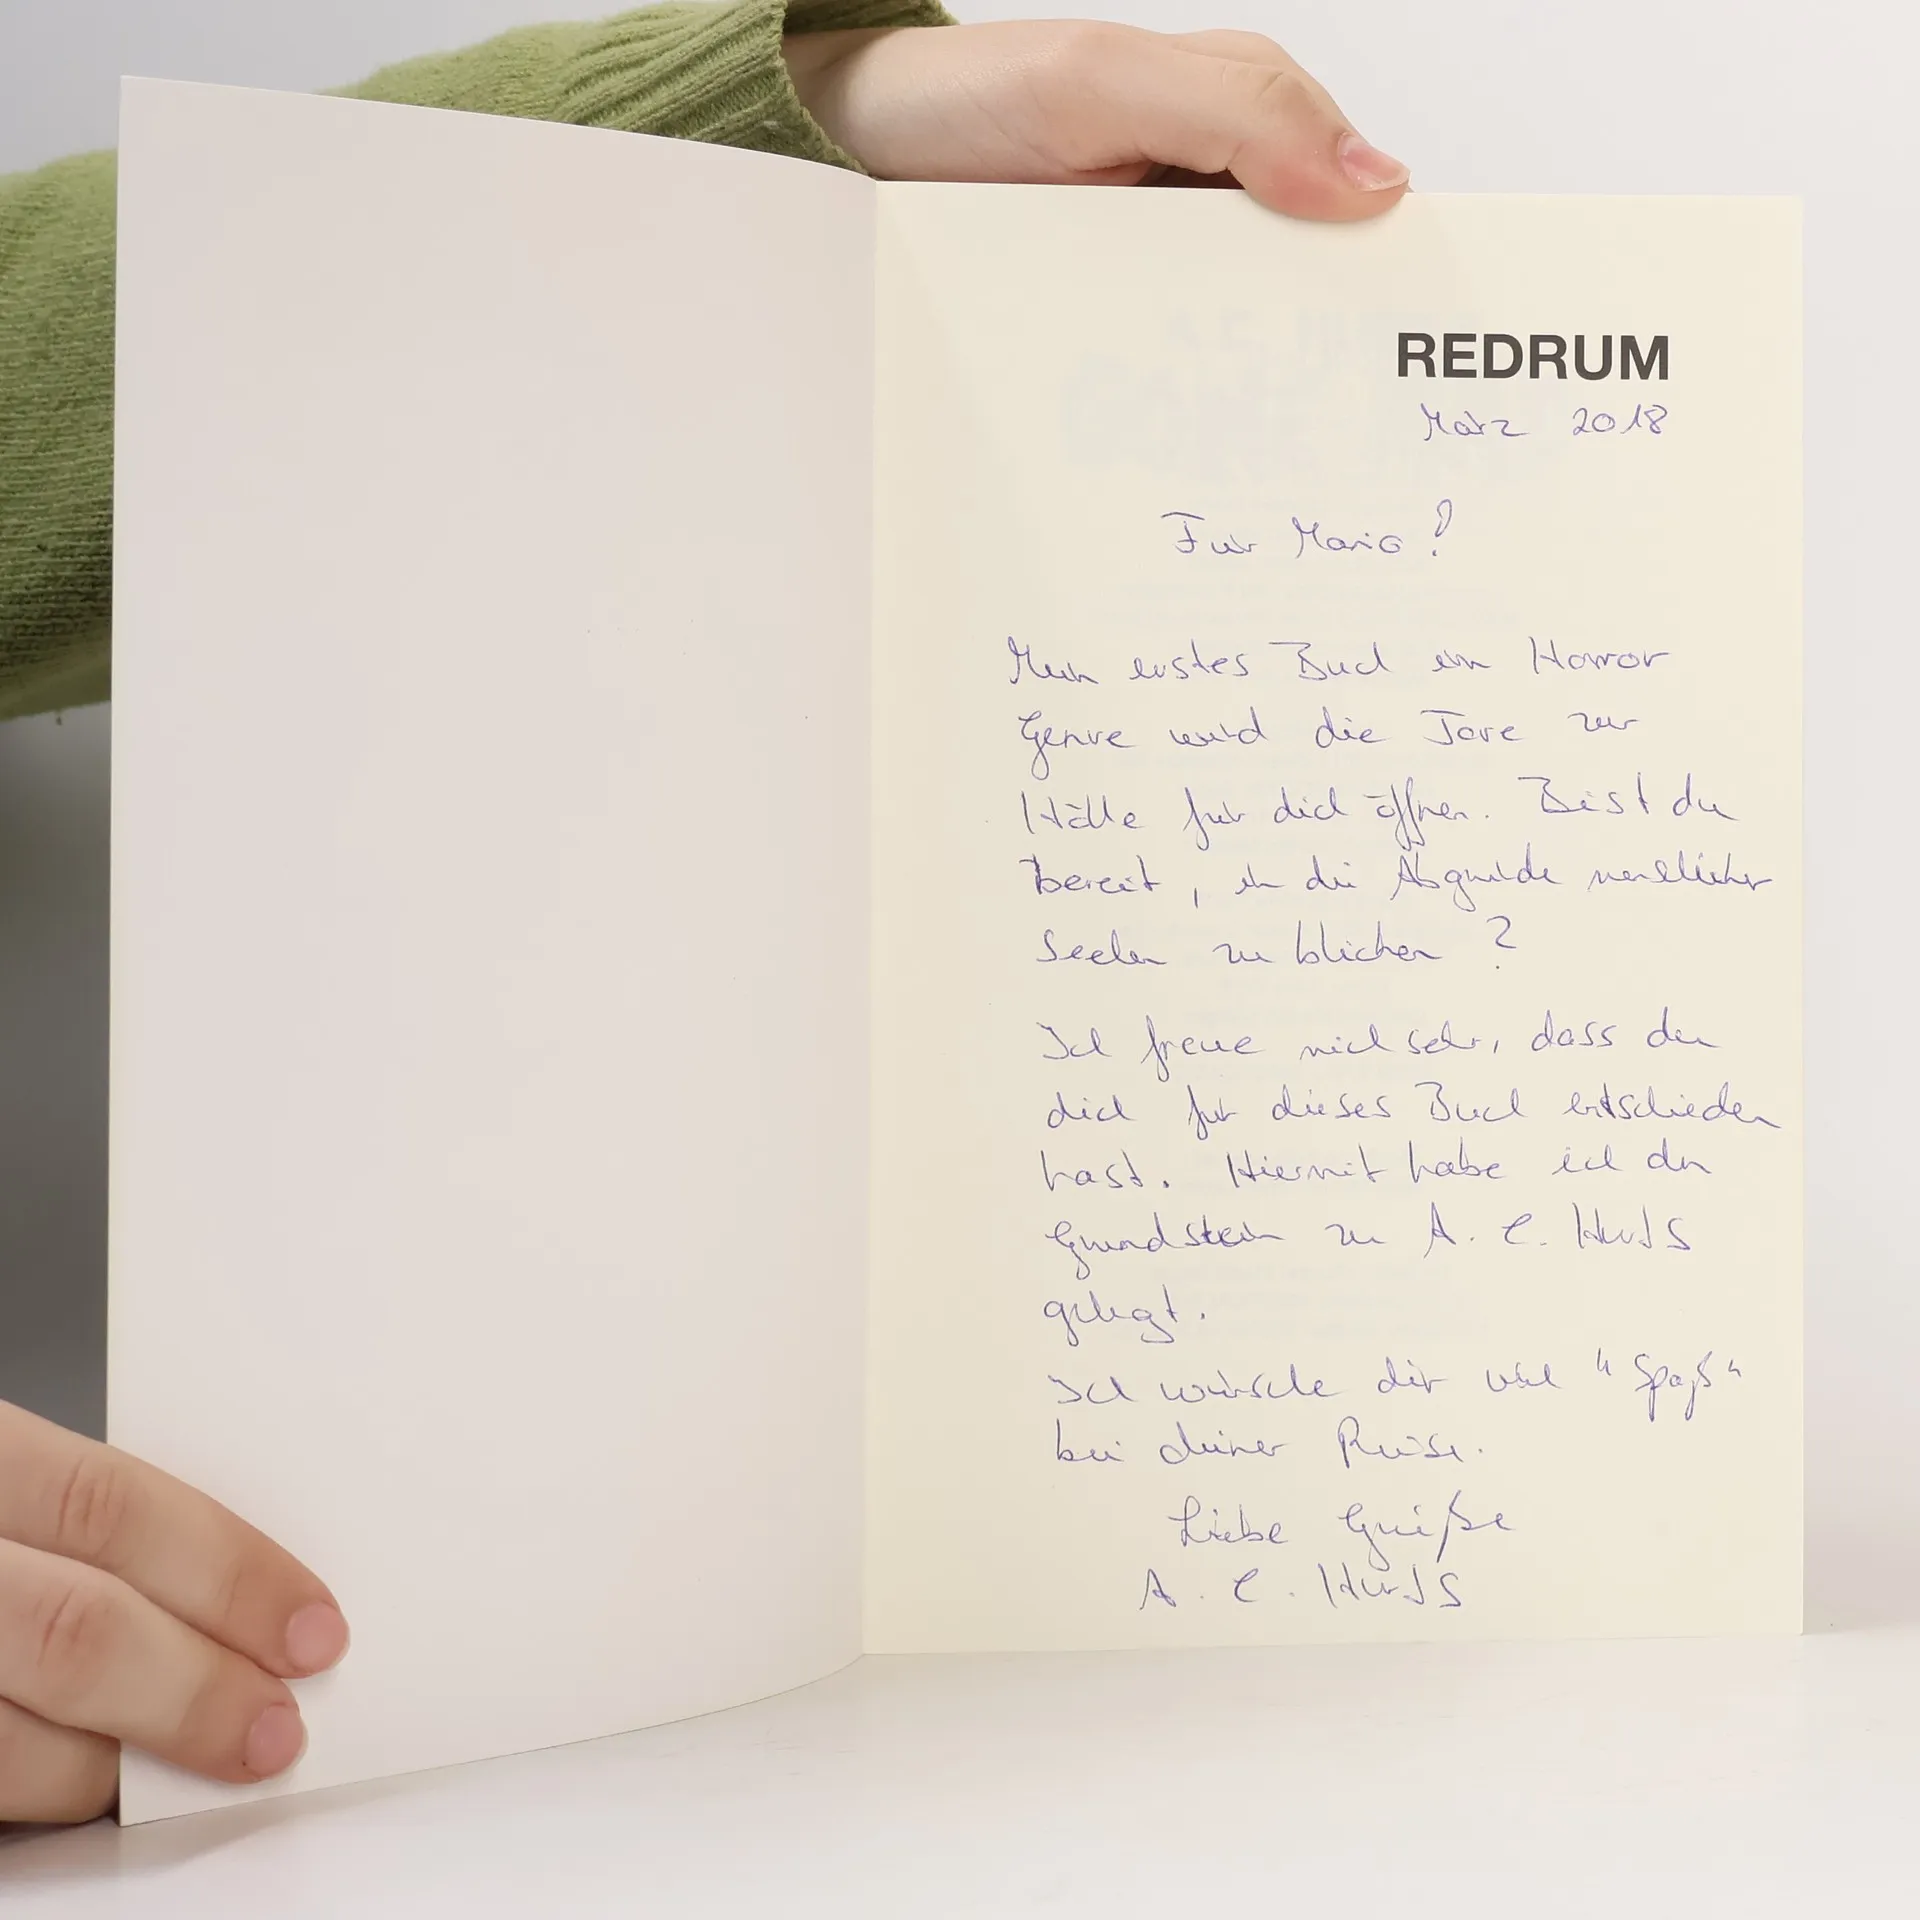 REDRUM
März 2018
Für Mario!
Mein erstes Buch im Horror
Genre wird die Tore zur
Hölle für dich öffnen. Bist du
bereit, in die Abgründe menschlicher
Seelen zu blicken?
Ich freue mich sehr, dass du
dich für dieses Buch entschieden
hast. Hiermit habe ich den
Grundstein zu A. C. Hurts
gelegt.
Ich wünsche dir viel "Spaß"
bei deiner Reise.
Liebe Grüße
A. C. Hurts